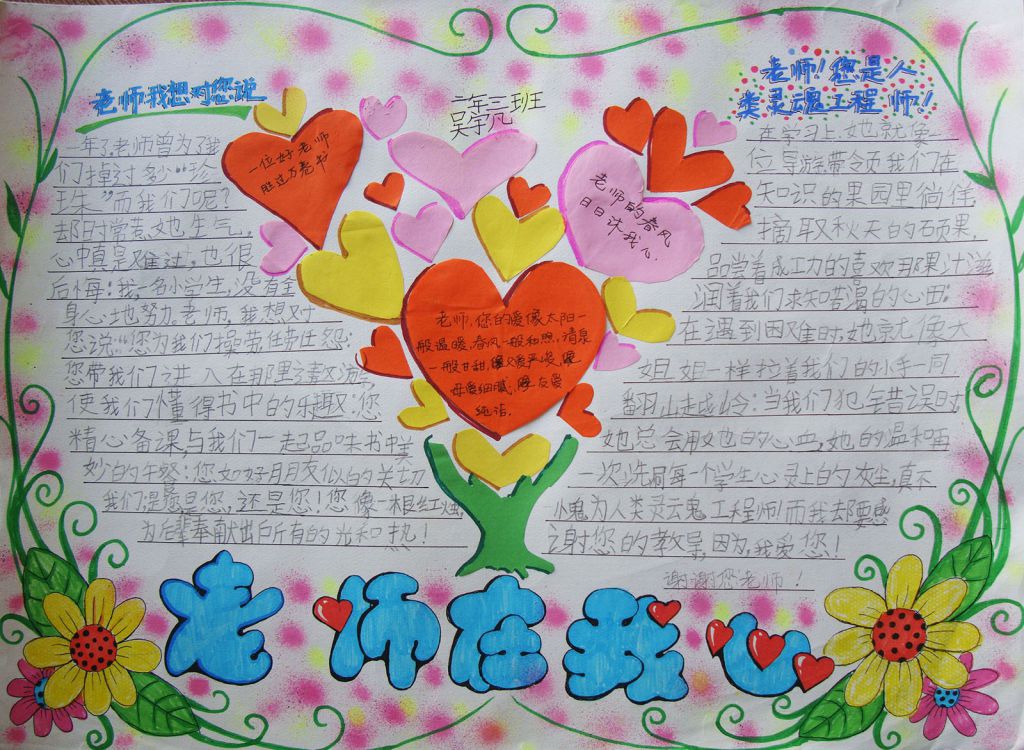 二年三班
吴宇凡
老师我想对您说
一年了,老师曾为了我
们掉过多少“珍
珠”而我们呢?
却时常惹她生气,
心中真是难过,也很
后悔:我一名小学生,没有全
身心地努力。老师,我想对
您说“您为我们操劳任劳任怨:
您带我们进入在那里遨游,
使我们懂得书中的乐趣:您
精心备课,与我们一起品味书中美
妙的午餐:您如好朋友似的关切
我们,是是您,还是您!您像一根红烛,
为后辈奉献出所有的光和热!
一位好老师
胜过万卷书
老师的春风
日日沐我心.
老师,您的爱像太阳一
般温暖,春风一般和煦,清泉
一般甘甜,父爱严峻,
母爱细腻,友爱
纯洁.
老师!您是人
类灵魂工程师!
在学习上,她就像
位导游带领我们在
知识的果园里徜徉,
摘取秋天的硕果,
品尝着成功的喜欢那果汁滋
润着我们求知若渴的心田:
在遇到困难时,她就像大
姐姐一样拉着我们的小手一同
翻山越岭:当我们犯错误时
她总会用她的心血,她的温和再
一次洗刷每一个学生心灵上的灰尘,真不
愧为人类灵魂工程师!而我却要感
谢您的教导,因为,我爱您!
谢谢您老师!
老师在我心